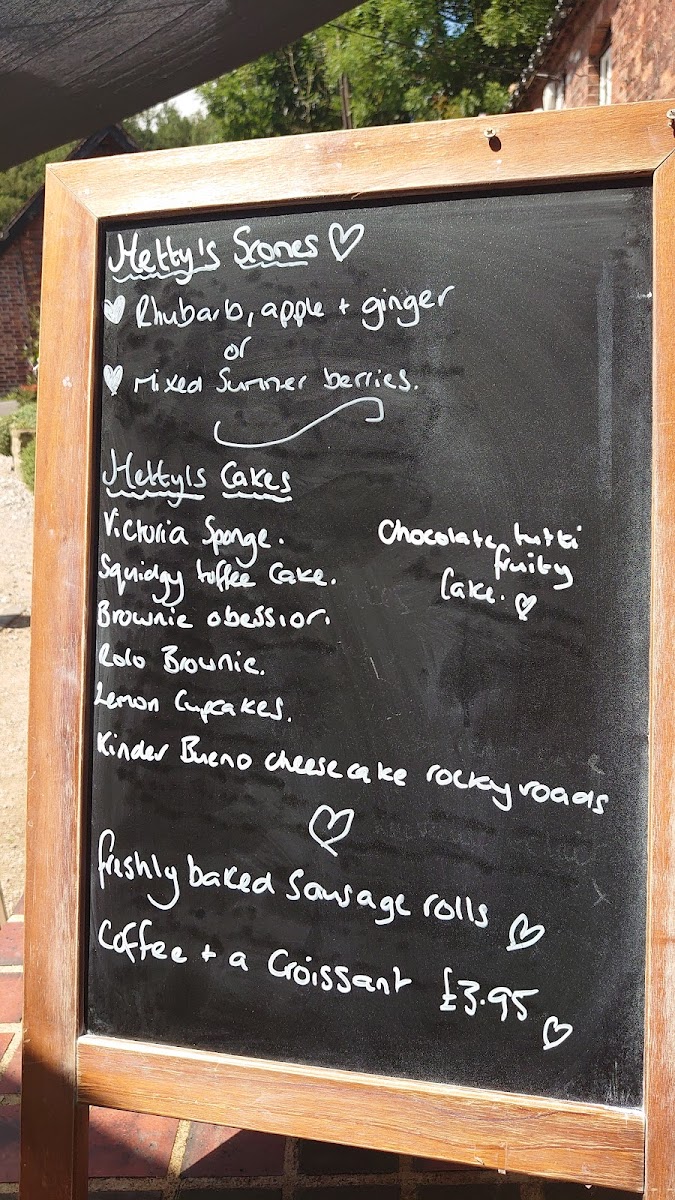 Hetty's Scones
Rhubarb, apple + ginger
or
Mixed Summer berries.
Hetty's Cakes
Victoria Sponge.
Squidgy toffee Cake.
Brownie obession.
Rolo Brownie.
Lemon Cupcakes.
Chocolate tutti
fruity
Cake.
Kinder Bueno cheesecake rocky roads
freshly baked Sausage rolls
Coffee + a Croissant £3.95